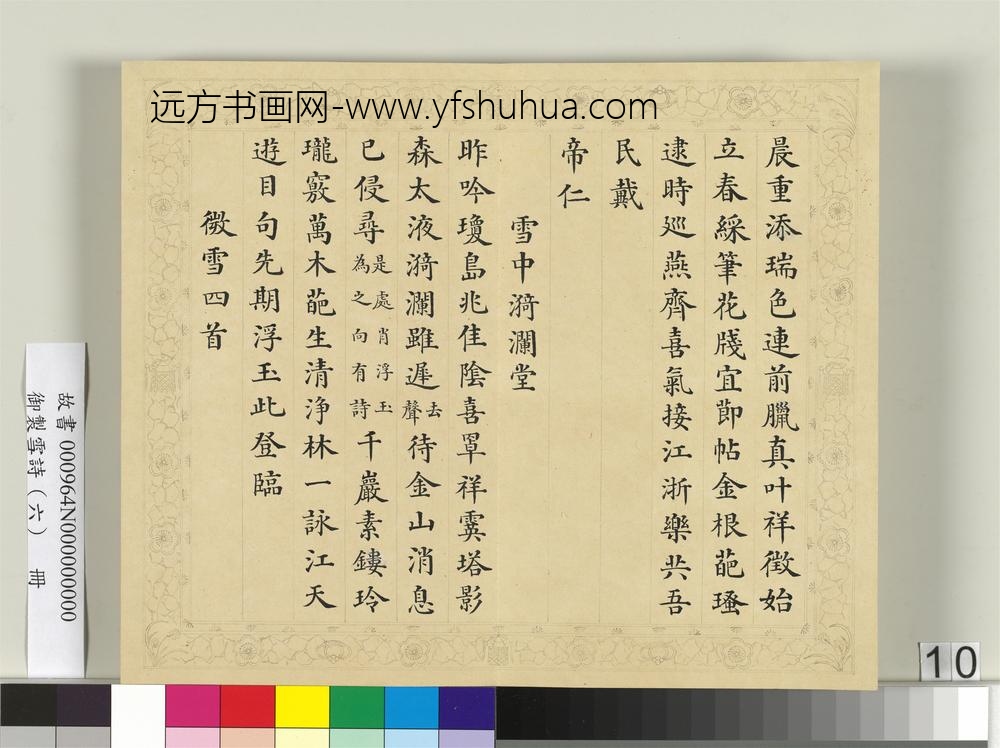 远方书画网-www.yfshuhua.com
晨重添瑞色連前臘真叶祥徵始
立春綵筆花牋宜節帖金根葩瑵
逮時廵燕齊喜氣接江浙樂共吾
民戴
帝仁
雪中漪瀾堂
昨吟瓊島兆佳陰喜罩祥霙塔影
森太液漪瀾雖遲去聲待金山消息
已侵尋是處肖浮玉為之向有詩千巖素鏤玲
瓏竅萬木葩生清淨林一詠江天
遊目句先期浮玉此登臨
微雪四首
故書 000964N000000000
御製雪詩（六） 冊
10